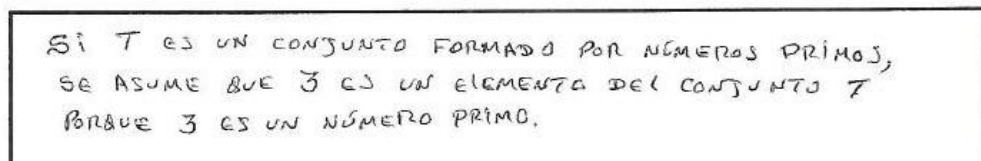 Si T ES UN CONJUNTO FORMADO POR NÚMEROS PRIMOS,
SE ASUME QUE 3 ES UN ELEMENTO DEL CONJUNTO T
PORQUE 3 ES UN NÚMERO PRIMO.